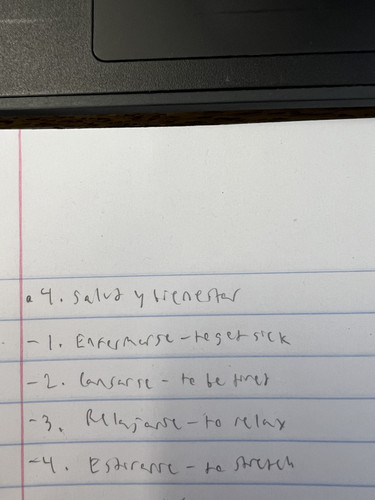 • 4. Salud y bienestar
- 1. Enfermarse - to get sick
- 2. Cansarse - to be tired
- 3. Relajarse - to relax
- 4. Estirarse - to stretch